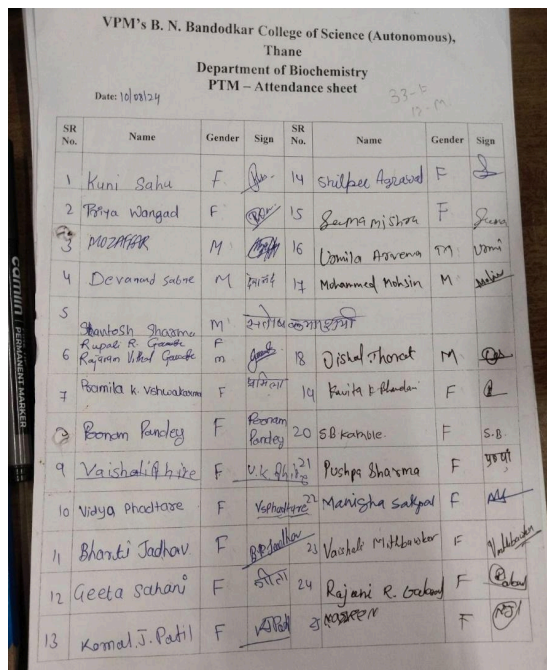 VPM's B. N. Bandodkar College of Science (Autonomous),
Thane
Department of Biochemistry
PTM – Attendance sheet
Date: 10/08/24
33-F
12-M
SR No. Name Gender Sign SR No. Name Gender Sign
1 Kuni Sahu F 14 Shilpee Agrawal F
2 Priya Wangad F 15 Seema mishra F Seema
3 MOZAFFAR M 16 Urmila M Urmi
4 Devanand Sabne M देवानंद 17 Mohammed Mohsin M
5 Shantosh Sharma M
Rupali R. F
6 Rajaram Vitthal M 18 Vishal Thorat M
7 Pramila k. Vshwakarma F प्रमिला 19 Kavita F
8 Poonam Pandey F Poonam Pandey 20 SB Kamble. F S.B.
9 Vaishali Ghire F V.K. Ghire 21 Pushpa Sharma F
10 Vidya Phadtare F VSPhadtare 22 Manisha Sakpal F
11 Bharti Jadhav F 23 Vaishali Mithbawkar F
12 Geeta Sahani F गीता 24 Rajani R. F
13 Komal. J. Patil F 25 F
camlin PERMANENT MARKER